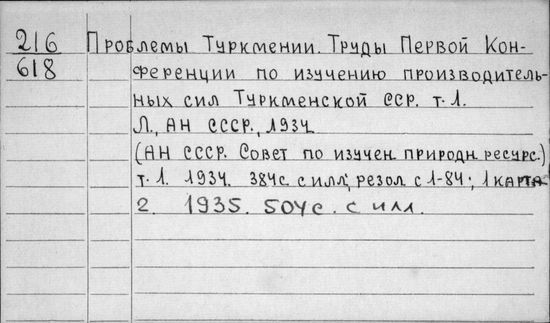 216 Проблемы Туркмении. Труды Первой Кон-
618 ференции по изучению производитель-
ных сил Туркменской ССР. т.1.
Л., АН СССР., 1934
(АН СССР. Совет по изучен. природн. ресурс.)
т.1. 1934. 384с. с илл; резол с 1-84; 1 карта
2. 1935. 504с. с илл.